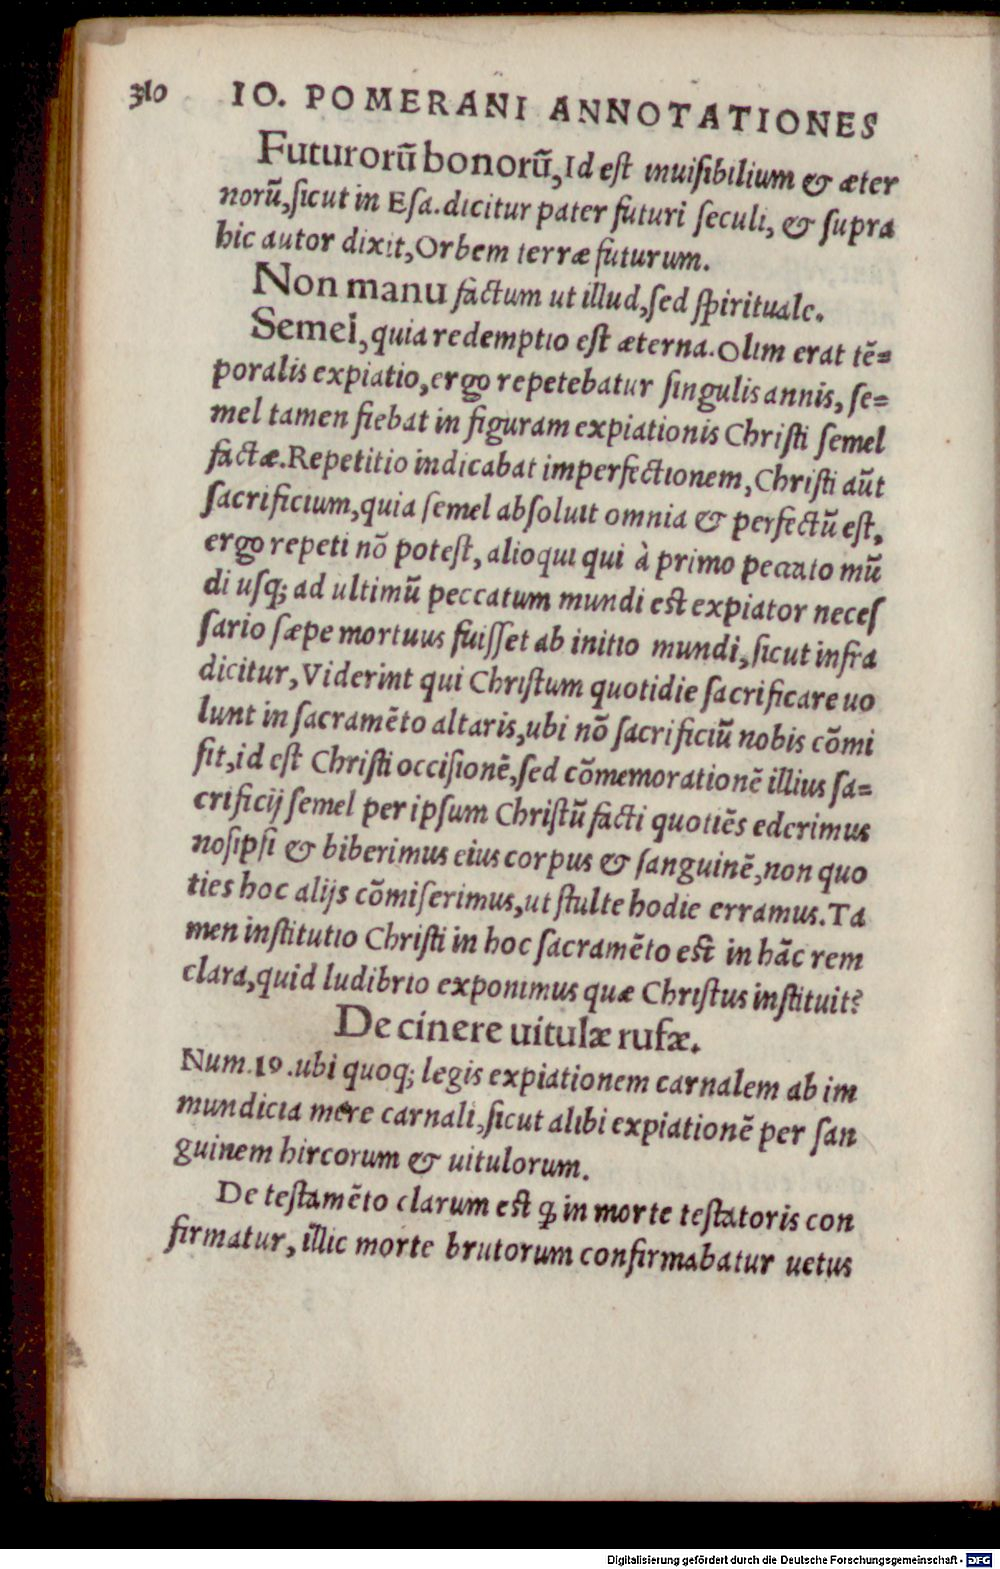 310 IO. POMERANI ANNOTATIONES
Futurorũ bonorũ, Id est inuisibilium & æter
norũ, sicut in Esa. dicitur pater futuri seculi, & supra
hic autor dixit, Orbem terræ futurum.
Non manu factum ut illud, sed spirituale.
Semel, quia redemptio est æterna. Olim erat tẽ=
poralis expiatio, ergo repetebatur singulis annis, se=
mel tamen fiebat in figuram expiationis Christi semel
factæ. Repetitio indicabat imperfectionem, Christi aũt
sacrificium, quia semel absoluit omnia & perfectũ est,
ergo repeti nõ potest, alioqui qui à primo peccato mũ
di usq; ad ultimũ peccatum mundi est expiator neces
sario sæpe mortuus fuisset ab initio mundi, sicut infra
dicitur, Viderint qui Christum quotidie sacrificare uo
lunt in sacramẽto altaris, ubi nõ sacrificiũ nobis cõmi
sit, id est Christi occisionẽ, sed cõmemorationẽ illius sa=
crificij semel per ipsum Christũ facti quotiẽs ederimus
nosipsi & biberimus eius corpus & sanguinẽ, non quo
ties hoc alijs cõmiserimus, ut stulte hodie erramus. Ta
men institutio Christi in hoc sacramẽto est in hãc rem
clara, quid ludibrio exponimus quæ Christus instituit?
De cinere uitulæ rufæ.
Num. 19. ubi quoq; legis expiationem carnalem ab im
mundicia mere carnali, sicut alibi expiationẽ per san
guinem hircorum & uitulorum.
De testamẽto clarum est ꝙ in morte testatoris con
firmatur, illic morte brutorum confirmabatur uetus
Digitalisierung gefördert durch die Deutsche Forschungsgemeinschaft - DFG